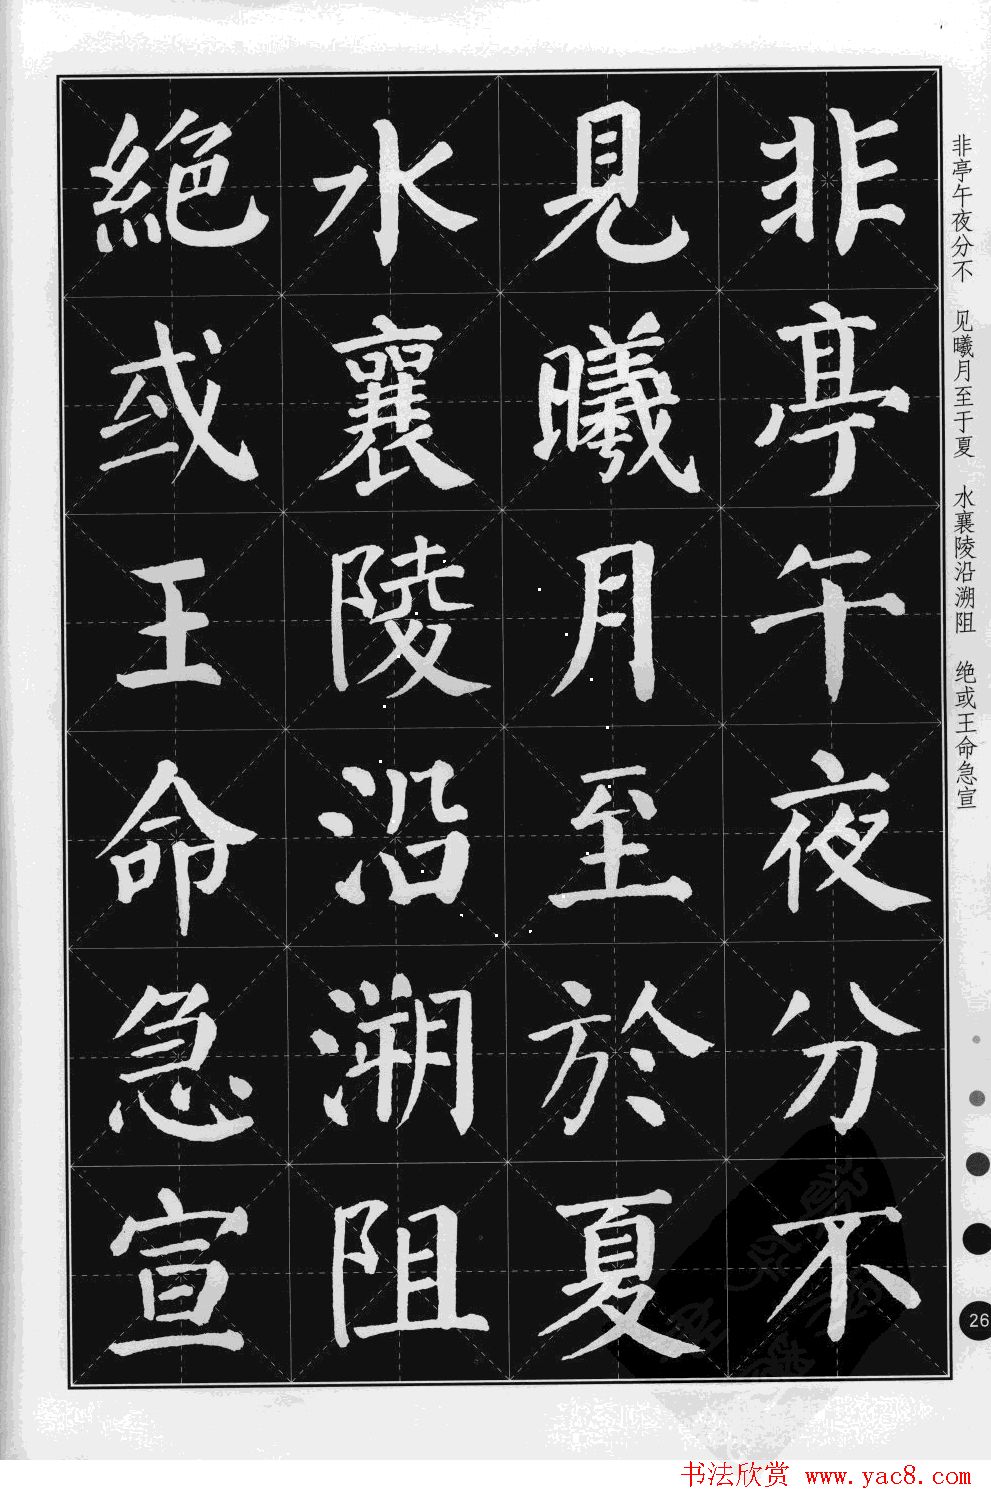 非亭午夜分不
見曦月至於夏
水襄陵沿溯阻
絕或王命急宣
非亭午夜分不 见曦月至于夏 水襄陵沿溯阻 绝或王命急宣
26
书法欣赏 www.yac8.com